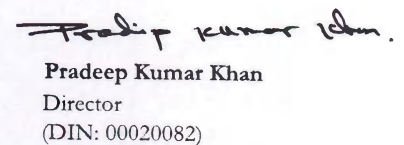 Pradip Kumar Khan.
Pradeep Kumar Khan
Director
(DIN: 00020082)